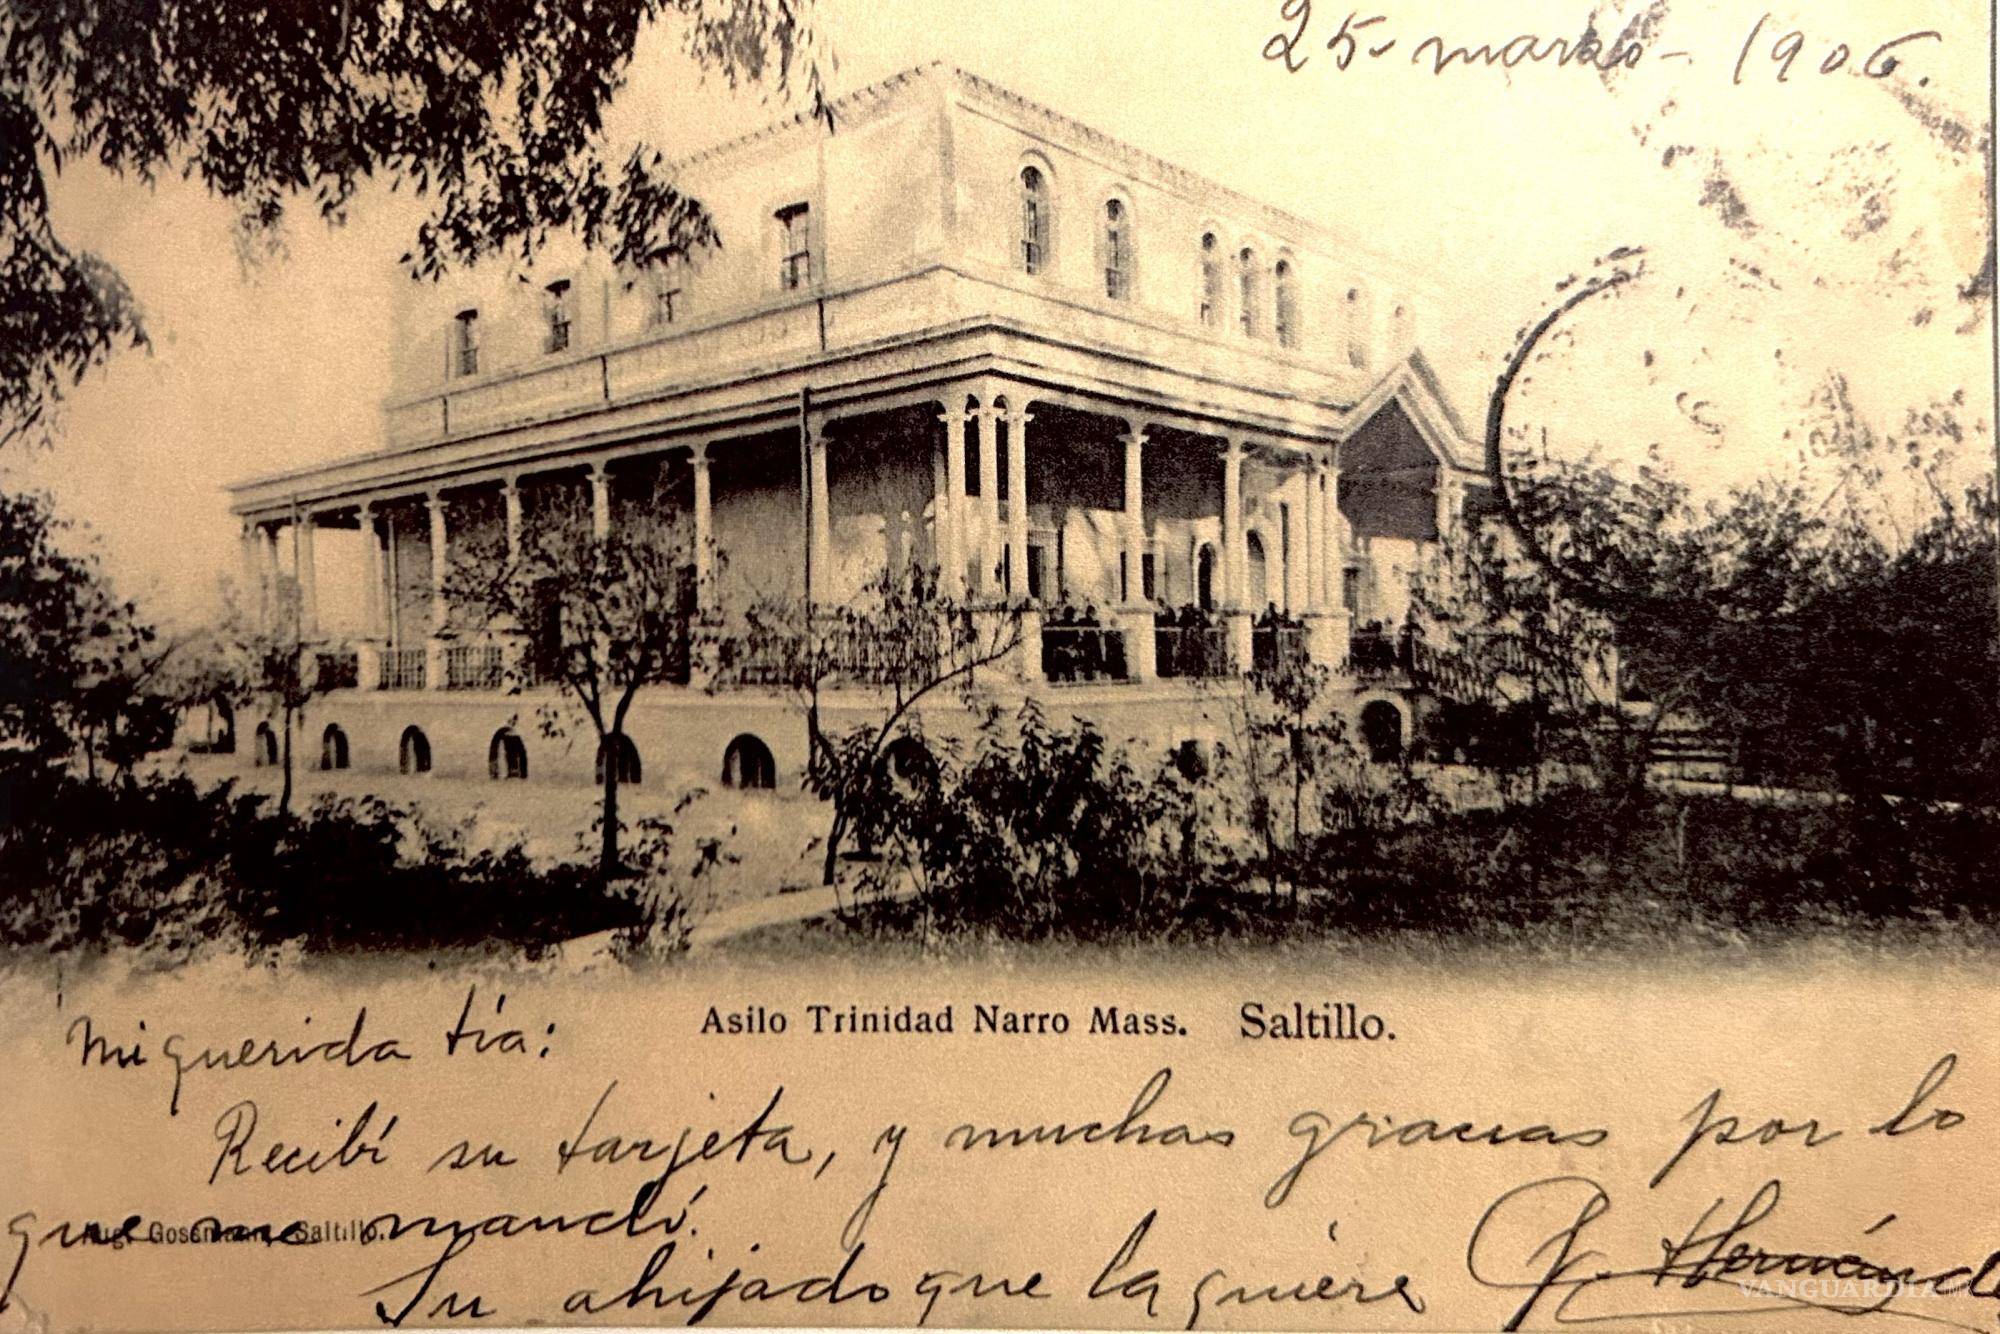 25 - marzo - 1906.
Asilo Trinidad Narro Mass. Saltillo.
Mi querida tía:
Recibí su tarjeta, y muchas gracias por lo
que me mandó.
Aug. Gossmann, Saltillo.
Su ahijado que la quiere
Hernánde
VANGUARDIA MX